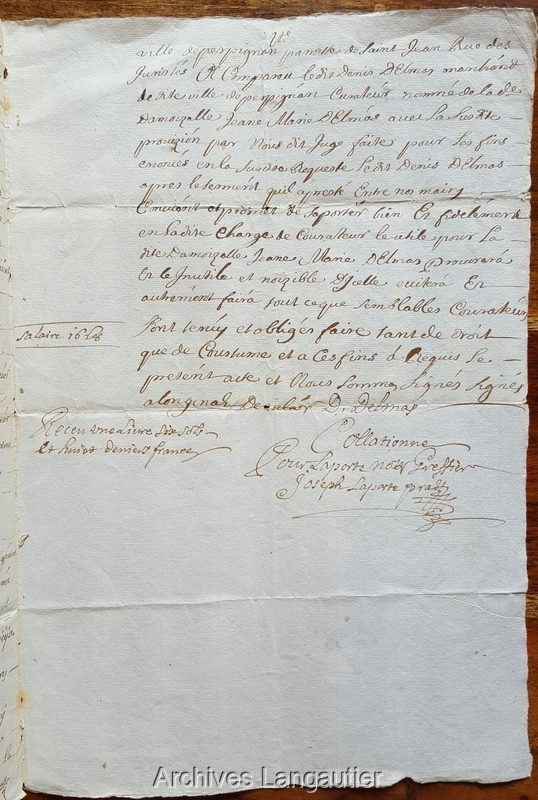 dte
ville deperpignan parroisse de Saint Jean Rue des
Juristés A Compareu ledit Denis DElmas marchand
dedite ville deperpignan Curateur nommé de la de
Damoizelle Jeane Marie DElmas avec la Susdite
provizion par Nous dit Juge faite pour les fins
enonces en la Susdite Requeste Ledit Denis DElmas
apres le serment quil apresté Entre nos mains
Convient et promet de Saporter bien Et fidelement
en Ladite Charge de Courateur le utile pour La
dite Damoizelle Jeane Marie DElmas procurera
Et le Inutile et noizible Dicelle evitera Et
autrement faira tout ceque semblables Courateurs
Salaire 16 s 8
Sont tenus et obligés faire tant de droit
que de Coustume et a Ces fins a Requis Le
present acte et Nous Sommes Signés Signés
aloriginal D. Delmas
Receu une Livre six sols
Et huiet deniers france
Collationne
Pour Laporte nore Greffier
Joseph Laporte
Archives Langautier